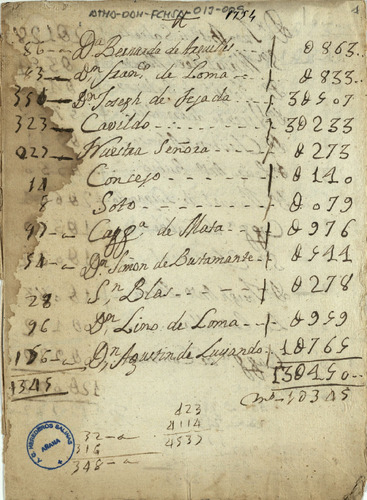 ATHO-DOH-FCHSA-013-025
1754
86 Dª Bernarda de 0863
93 Dn Franco de Loma 0833
350 Dn Joseph de Tejada 30507
323 Cavildo 30233
027 Nuestra Señora 0273
14 Concejo 0140
8 Soto 0079
97 Capªª de Mata 0976
54 Dn Simon de Bustamante 0544
28 Sn Blas 0278
96 Dn Lino de Loma 0959
156 Dn Agustin de Luyando 10765
1345 130450
10345
423
4114
4537
32
316
348
A.C. HEREDEROS SALINAS
AÑANA